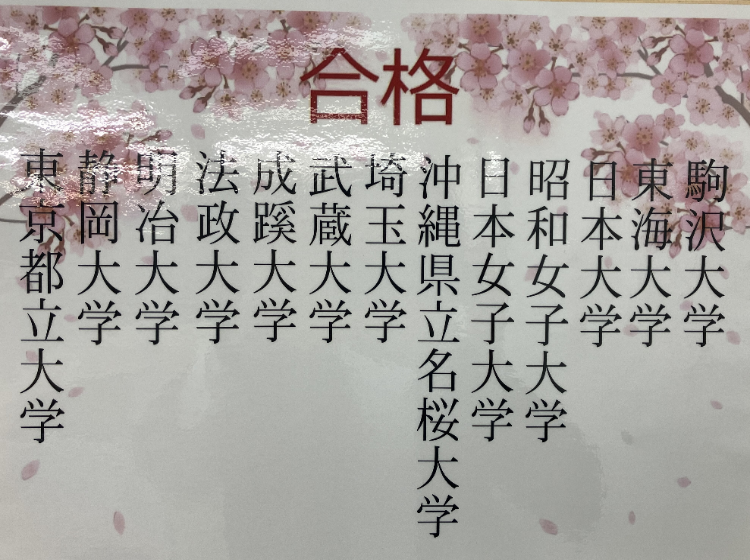 合格
駒沢大学
東海大学
日本大学
昭和女子大学
日本女子大学
沖縄県立名桜大学
埼玉大学
武蔵大学
成蹊大学
法政大学
明冶大学
静岡大学
東京都立大学